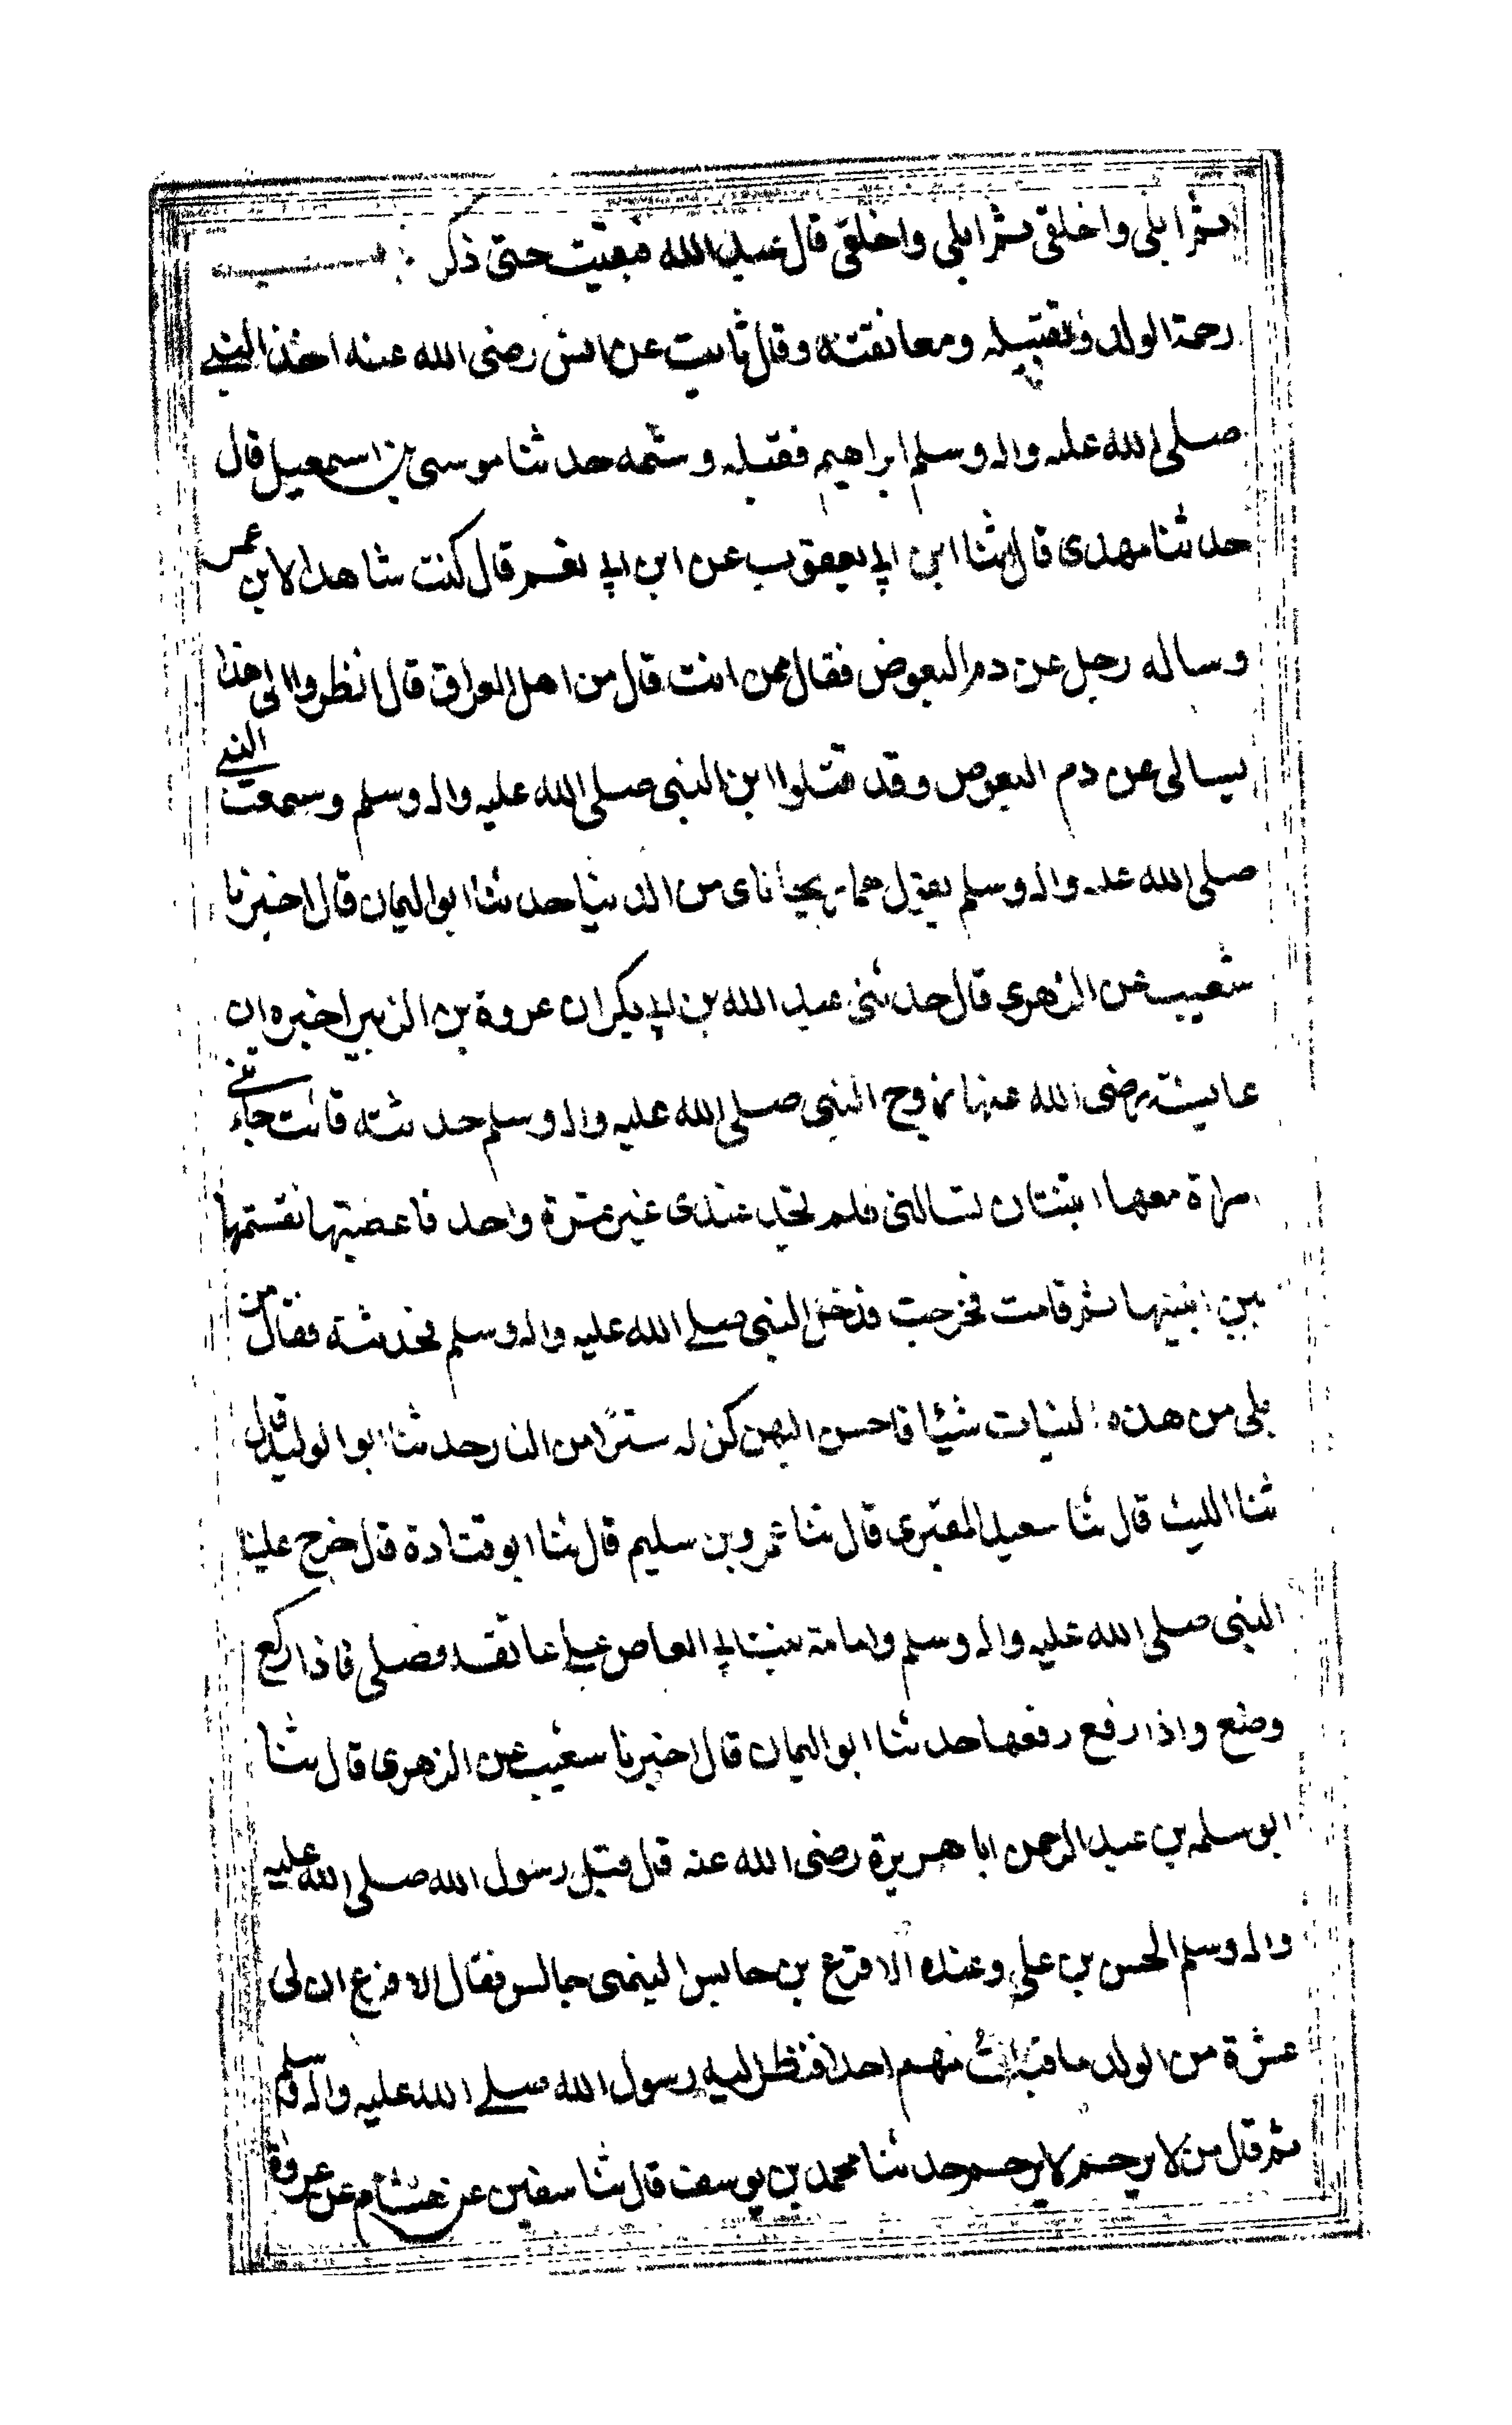 ثم ابلي واخلقي ثم ابلي واخلقي قال عبد الله فبقيت حتى ذكر
رحمة الولد وتقبيله ومعانقته وقال ثابت عن انس رضى الله عنه اخذ النبي
صلى الله عليه واله وسلم ابراهيم فقبله وشمه حدثنا موسى بن اسمعيل قال
حدثنا مهدى قال ثنا ابن ابي يعقوب عن ابن ابي نعم قال كنت شاهدا لابن عمر
وساله رجل عن دم البعوض فقال ممن انت قال من اهل العراق قال انظروا الى هذا
يسالى عن دم البعوض وقد قتلوا ابن النبي صلى الله عليه واله وسلم وسمعت النبي
صلى الله عليه واله وسلم يقول هما ريحاناى من الدنيا حدثنا ابو اليمان قال اخبرنا
شعيب عن الزهرى قال حدثنى عبد الله بن ابي بكر ان عروة بن الزبير اخبره ان
عايشة رضى الله عنها زوج النبي صلى الله عليه واله وسلم حدثته قالت جاءتني
امراة معها ابنتان تسالنى فلم تجد عندى غير تمرة واحد فاعطيتها فقسمتها
بين ابنتيها ثم قامت فخرجت فدخل النبي صلى الله عليه واله وسلم فحدثته فقال من
يلى من هذه البنات شيئا فاحسن اليهن كن له سترا من النار حدثنا ابو الوليد قال
ثنا الليث قال ثنا سعيد المقبرى قال ثنا عمرو بن سليم قال ثنا ابو قتادة قال خرج علينا
النبي صلى الله عليه واله وسلم وامامة بنت ابي العاص على عاتقه فصلى فاذا ركع
وضع واذا رفع رفعها حدثنا ابو اليمان قال اخبرنا شعيب عن الزهرى قال ثنا
ابو سلمه بن عبد الرحمن ابا هريرة رضى الله عنه قال قبل رسول الله صلى الله عليه
واله وسلم الحسن بن علي وعنده الاقرع بن حابس التيمى جالس فقال الاقرع ان لى
عشرة من الولد ما قبلت منهم احدا فنظر اليه رسول الله صلى الله عليه واله وسلم
ثم قال من لا يرحم لا يرحم حدثنا محمد بن يوسف قال ثنا سفين عن هشام عن عروة